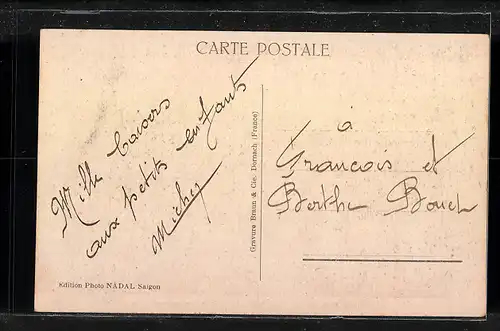 CARTE POSTALE
Mille baisers
aux petits enfants
Michel
Edition Photo NADAL Saigon
Gravure Braun & Cie, Dornach (France)
à
Francois et
Berthe